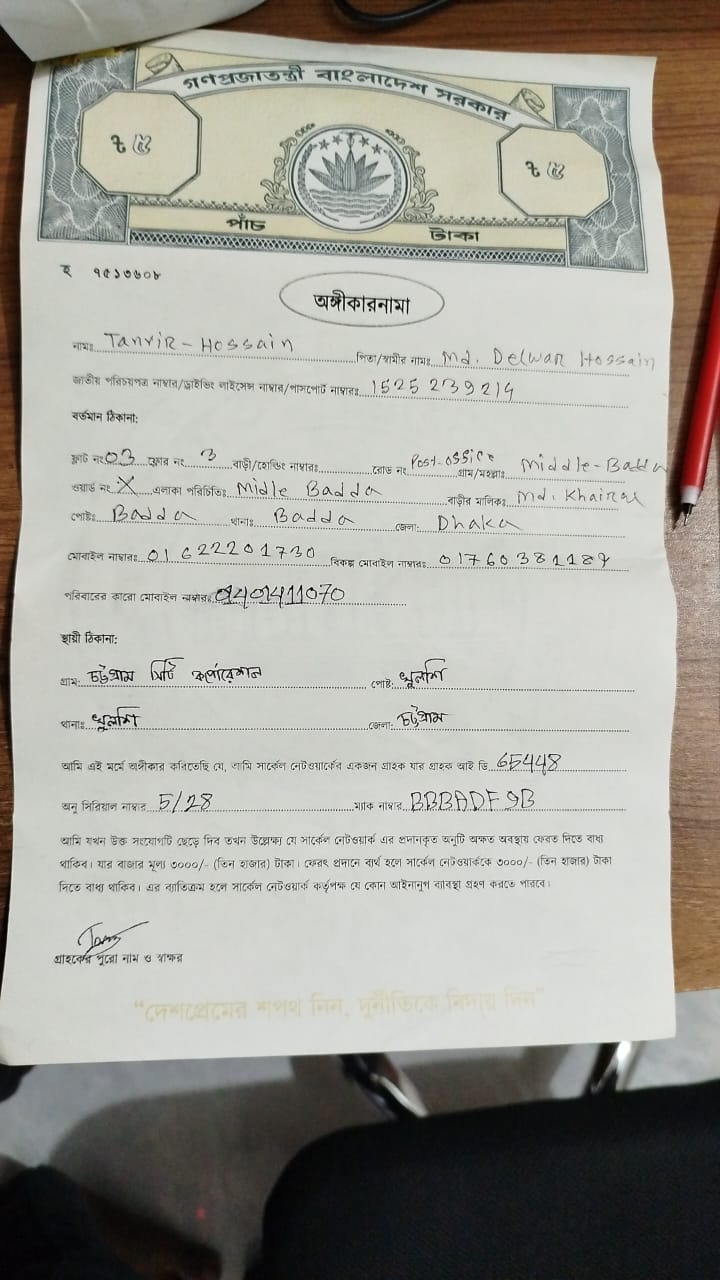 গণপ্রজাতন্ত্রী বাংলাদেশ সরকার
৳ ৫ ৳ ৫
পাঁচ টাকা
হ ৭৫১৩৬০৮
অঙ্গীকারনামা
নামঃ Tanvir - Hossain পিতা/স্বামীর নামঃ Md. Delwar Hossain
জাতীয় পরিচয়পত্র নাম্বার/ড্রাইভিং লাইসেন্স নাম্বার/পাসপোর্ট নাম্বারঃ 1525239214
বর্তমান ঠিকানা:
ফ্লাট নং 03 ফ্লোর নং 3 বাড়ী/হোল্ডিং নাম্বারঃ রোড নং Post-office গ্রাম/মহল্লাঃ Middle-Badda
ওয়ার্ড নং X এলাকা পরিচিতিঃ Midle Badda বাড়ীর মালিকঃ Md. Khairul
পোষ্টঃ Badda থানাঃ Badda জেলা: Dhaka
মোবাইল নাম্বারঃ 01622201730 বিকল্প মোবাইল নাম্বারঃ
পরিবারের কারো মোবাইল নাম্বারঃ
স্থায়ী ঠিকানা:
গ্রাম: চট্টগ্রাম সিটি কর্পোরেশন পোষ্ট: খুলশি
থানাঃ খুলশি জেলা: চট্টগ্রাম
আমি এই মর্মে অঙ্গীকার করিতেছি যে, আমি সার্কেল নেটওয়ার্কের একজন গ্রাহক যার গ্রাহক আই ডি 65448
অনু সিরিয়াল নাম্বার 5/28 ম্যাক নাম্বার BBBADF9B
আমি যখন উক্ত সংযোগটি ছেড়ে দিব তখন উল্লেক্ষ্য যে সার্কেল নেটওয়ার্ক এর প্রদানকৃত অনুটি অক্ষত অবস্থায় ফেরত দিতে বাধ্য
থাকিব। যার বাজার মূল্য ৩০০০/- (তিন হাজার) টাকা। ফেরৎ প্রদানে ব্যর্থ হলে সার্কেল নেটওয়ার্ককে ৩০০০/- (তিন হাজার) টাকা
দিতে বাধ্য থাকিব। এর ব্যতিক্রম হলে সার্কেল নেটওয়ার্ক কর্তৃপক্ষ যে কোন আইনানুগ ব্যাবস্থা গ্রহণ করতে পারবে।
গ্রাহকের পুরো নাম ও স্বাক্ষর
"দেশপ্রেমের শপথ নিন, দুর্নীতিকে বিদায় দিন"